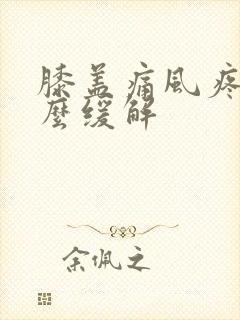 膝盖痛风疼
麼缓解
余佩之